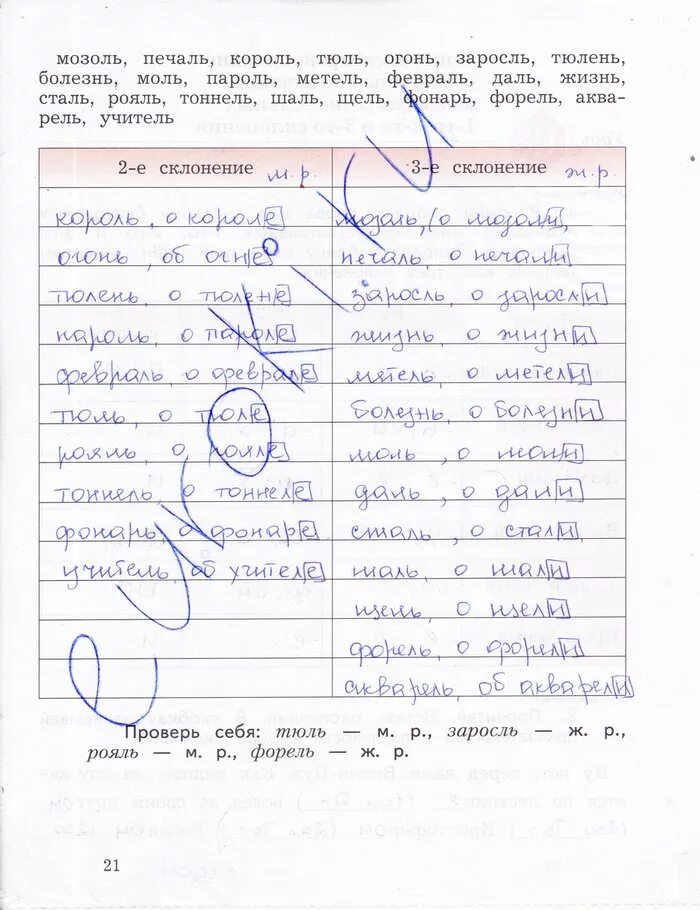 мозоль, печаль, король, тюль, огонь, заросль, тюлень,
болезнь, моль, пароль, метель, февраль, даль, жизнь,
сталь, рояль, тоннель, шаль, щель, фонарь, форель, аква-
рель, учитель
2-е склонение м.р. 3-е склонение ж.р.
король, о короле мозоль, (о мозоли,
огонь, об огне печаль, о печали
тюлень, о тюлене заросль, о заросли
пароль, о пароле жизнь, о жизни
февраль, о феврале мятель, о метели
тюль, о тюле болезнь, о болезни
рояль, о рояле моль, о моли
тоннель, о тоннеле даль, о дали
фонарь, о фонаре сталь, о стали,
учитель, об учителе шаль, о шали
щель, о щели
форель, о форели
акварель, об акварели
Проверь себя: тюль — м. р., заросль — ж. р.,
рояль — м. р., форель — ж. р.
21